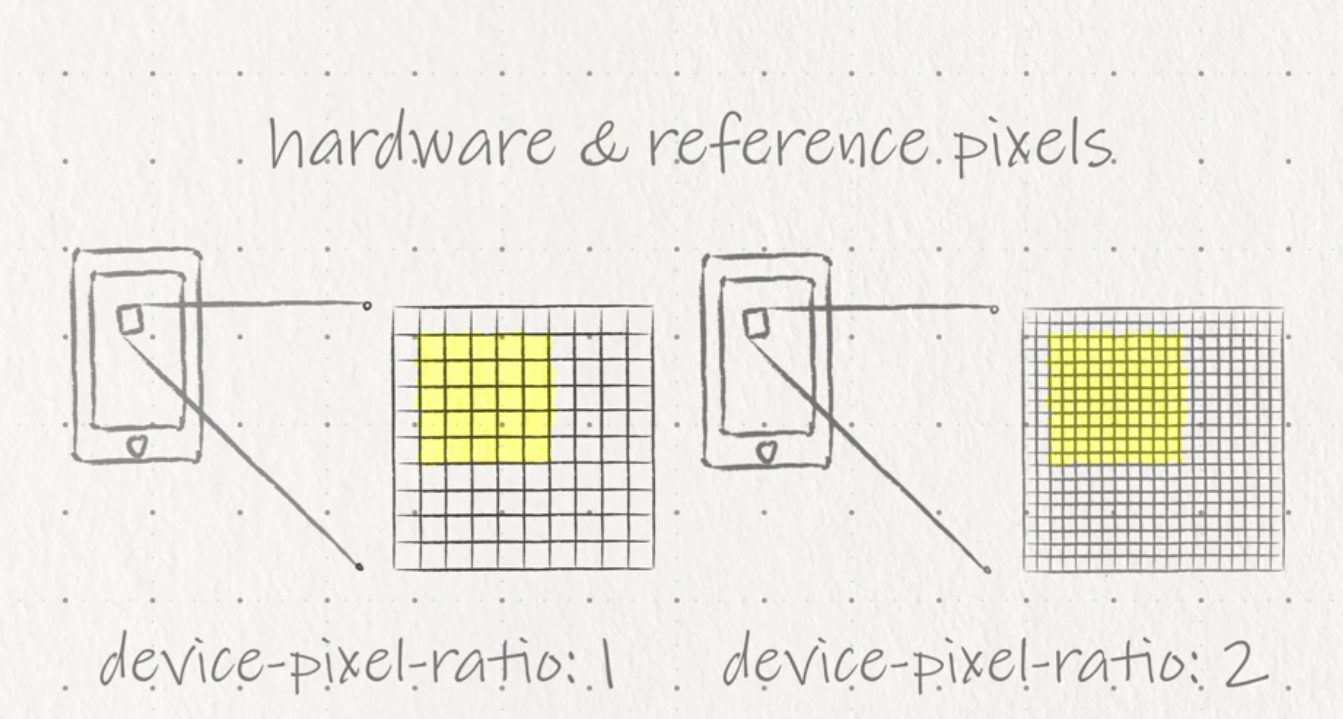 hardware & reference pixels
device-pixel-ratio: 1
device-pixel-ratio: 2